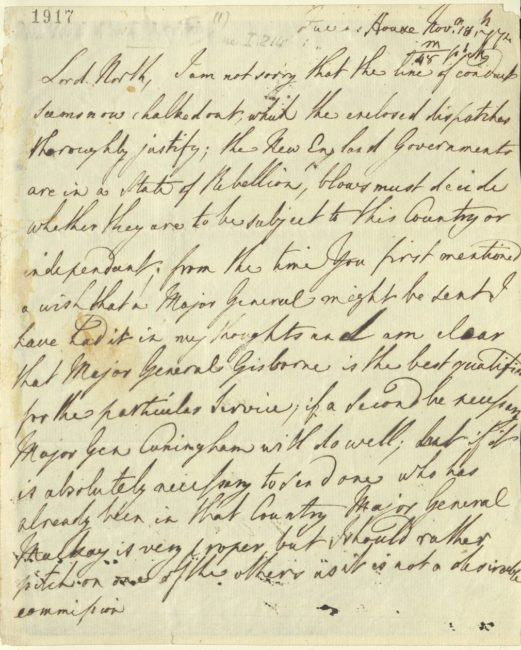 1917
(1)
House Nov. 18th 1774
m
48 pt
Lord North, I am not sorry that the line of conduct
seems now chalked out, which the enclosed dispatches
thoroughly justify; the New England Governments
are in a State of Rebellion, blows must decide
whether they are to be subject to this Country or
independant; from the time You first mentioned
a wish that a Major General might be sent I
have had it in my thoughts and am clear
that Major General Gisborne is the best qualified
for the particular Service, if a second be necessary
Major Gen Cuningham will do well; but if it
is absolutely necessary to send one who has
already been in that Country Major General
Mackay is very proper, but I should rather
pitch on one of the others as it is not a desirable
commission